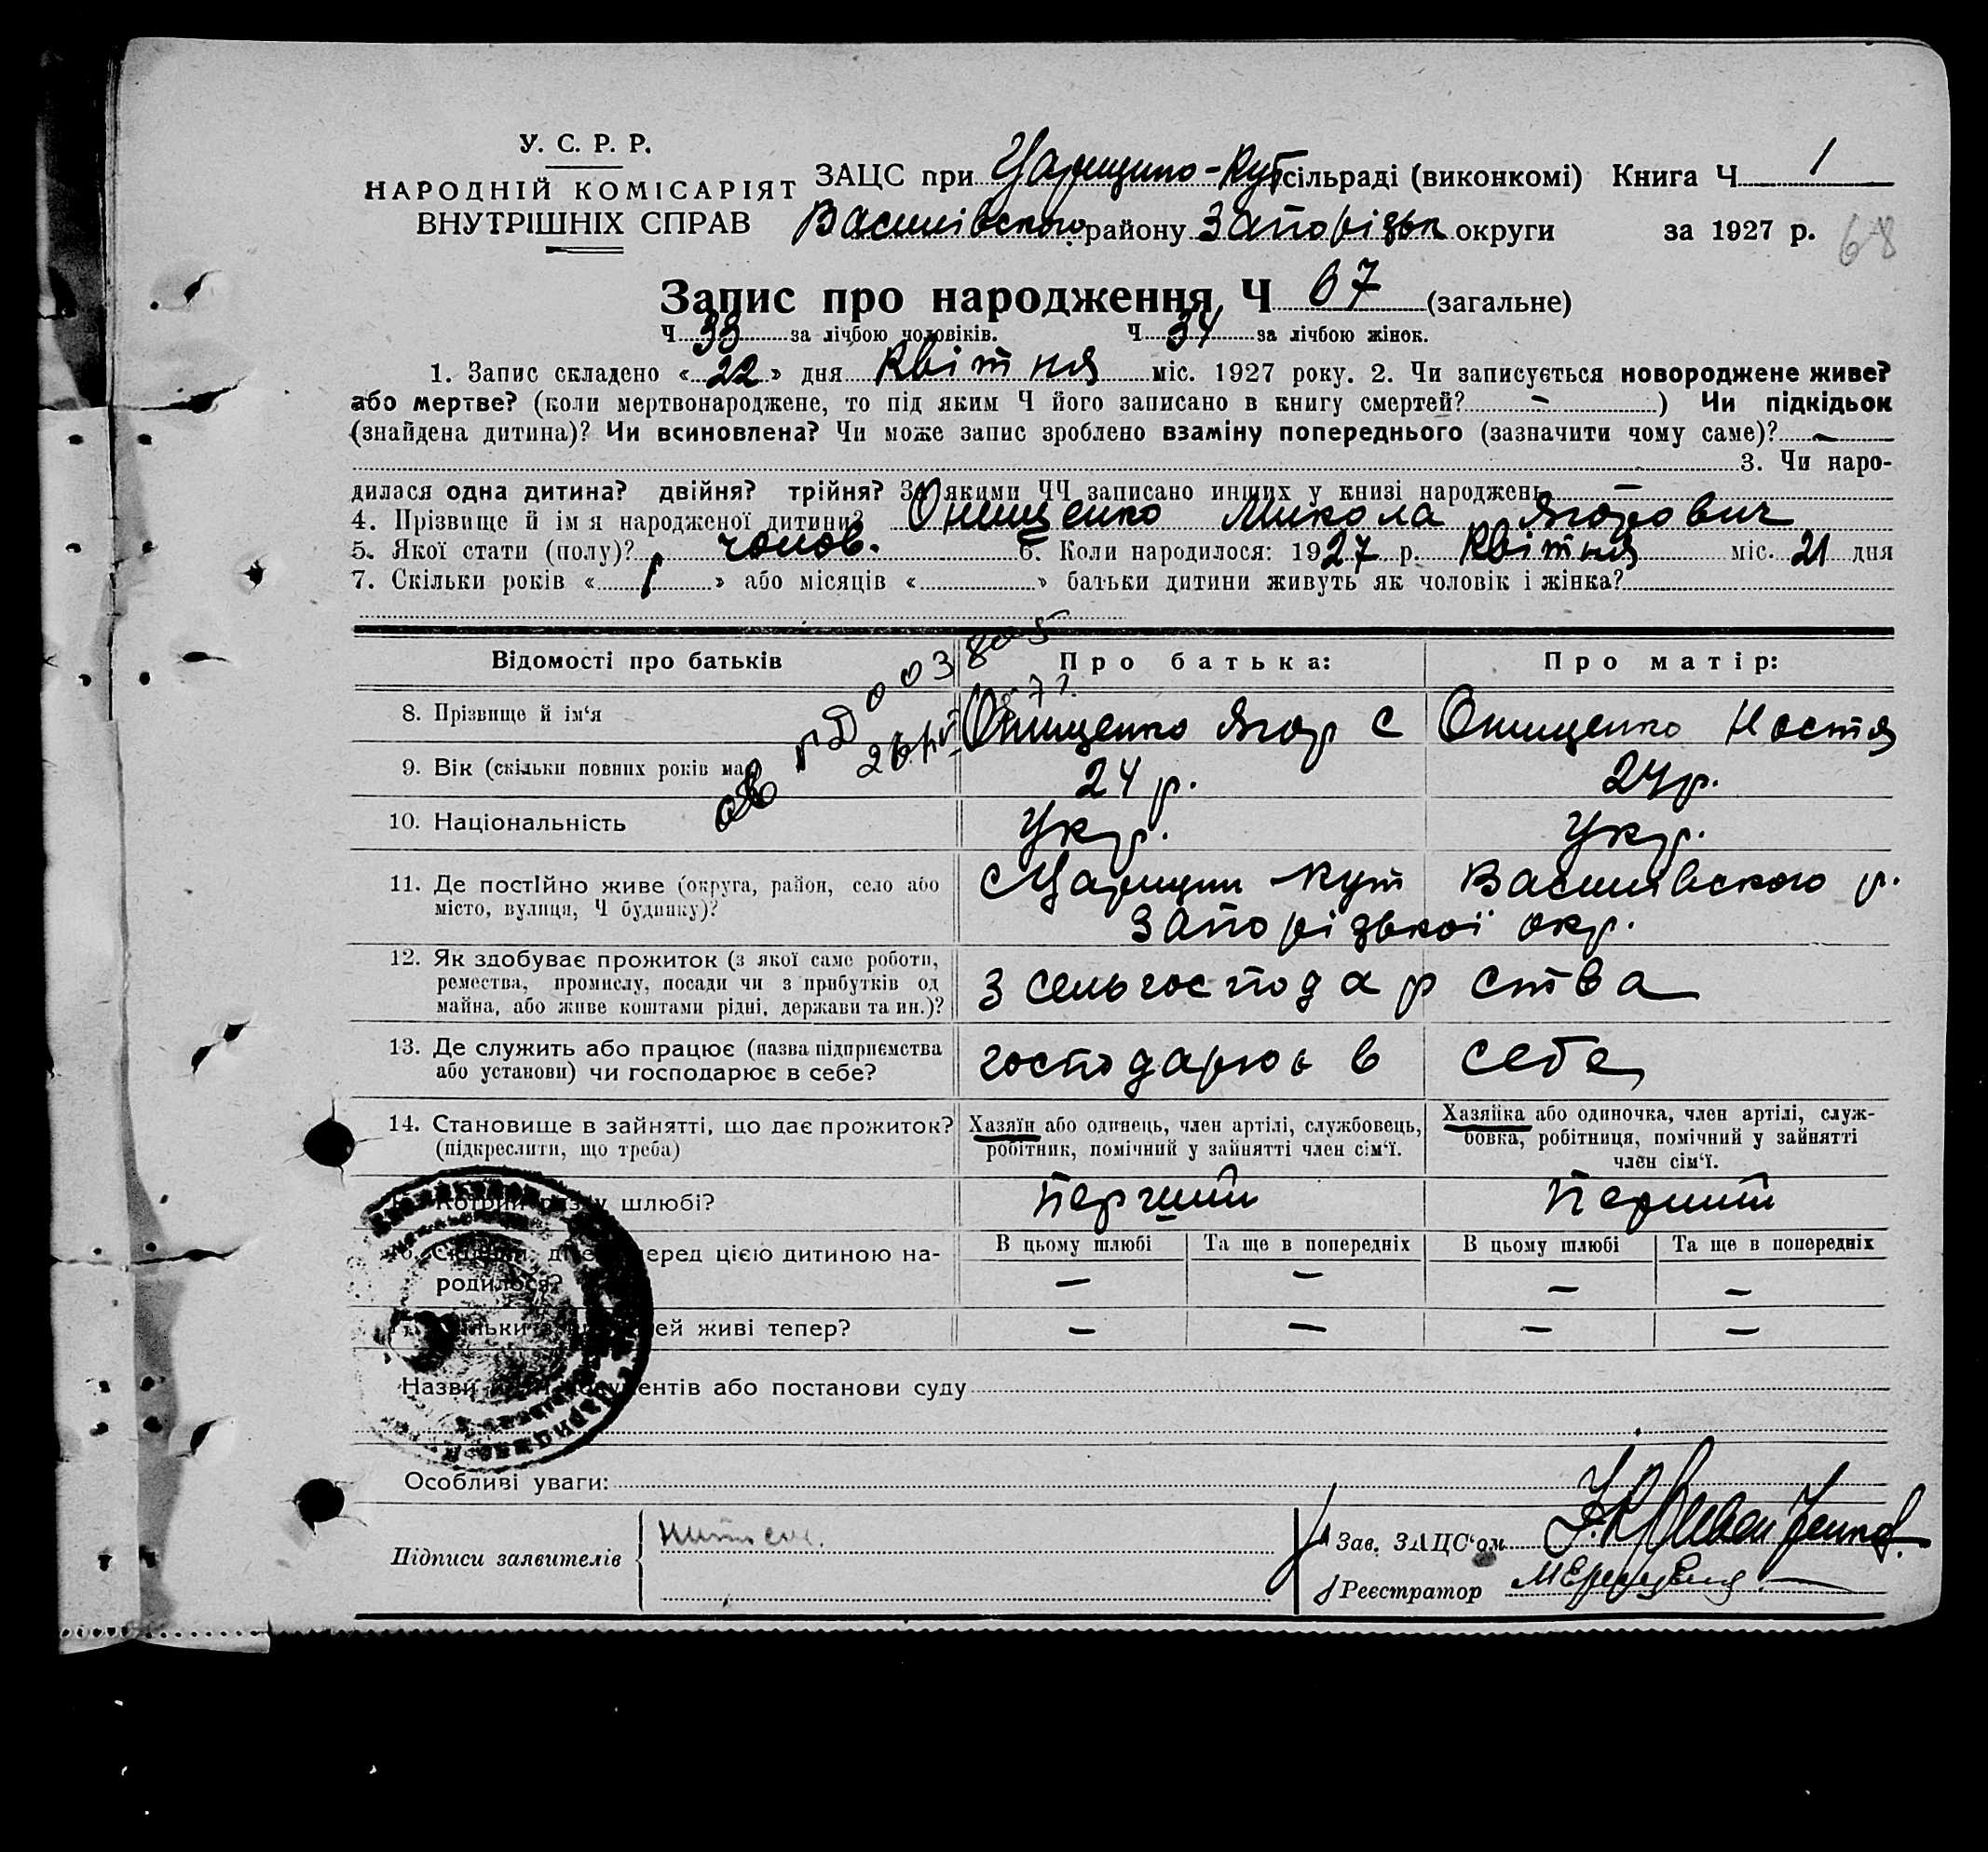 У. С. Р. Р.
НАРОДНІЙ КОМІСАРІЯТ
ВНУТРІШНІХ СПРАВ
ЗАЦС при Царицино-Кут сільраді (виконкомі) Книга Ч 1
Василівського району Запорізьк округи за 1927 р. 68
Запис про народження Ч 67 (загальне)
Ч 33 за лічбою чоловіків. Ч 34 за лічбою жінок.
1. Запис складено « 22 » дня Квітня міс. 1927 року. 2. Чи записується новороджене живе?
або мертве? (коли мертвонароджене, то під яким Ч його записано в книгу смертей? - ) Чи підкідьок
(знайдена дитина)? Чи всиновлена? Чи може запис зроблено взаміну попереднього (зазначити чому саме)? -
3. Чи наро-
дилася одна дитина? двійня? трійня? За якими ЧЧ записано инших у книзі народжень —
4. Прізвище й ім я народженої дитини? Онищенко Микола Ягорович
5. Якої стати (полу)? чолов. 6. Коли народилося: 1927 р. Квітня міс. 21 дня
7. Скільки років « 1 » або місяців « » батьки дитини живуть як чоловік і жінка?
Відомості про батьків Про батька: Про матір:
8. Прізвище й ім‘я Онищенко Ягор С Онищенко Настя
9. Вік (скільки повних років має) 24 р. 24 р.
10. Національність Укр. Укр.
11. Де постійно живе (округа, район, село або
місто, вулиця, Ч будинку)?
с Царицин Кут Василівського р.
Запорізької окр.
12. Як здобуває прожиток (з якої саме роботи,
ремества, промислу, посади чи з прибутків од
майна, або живе коштами рідні, держави та ин.)?
З сельгосподарства
13. Де служить або працює (назва підприємства
або установи) чи господарює в себе?
господарює в себе
14. Становище в зайнятті, що дає прожиток?
(підкреслити, що треба)
Хазяїн або одинець, член артілі, службовець,
робітник, помічний у зайнятті член сім‘ї.
Хазяйка або одиночка, член артілі, служ-
бовка, робітниця, помічний у зайнятті
член сім‘ї.
Котрий раз у шлюбі? Перший Перший
16. Скільки дітей перед цією дитиною на-
родилося?
В цьому шлюбі Та ще в попередніх В цьому шлюбі Та ще в попередніх
— — — —
дітей живі тепер? — — — —
Назви документів або постанови суду
Особливі уваги:
Підписи заявителів
Зав. ЗАЦС‘ом
Реєстратор